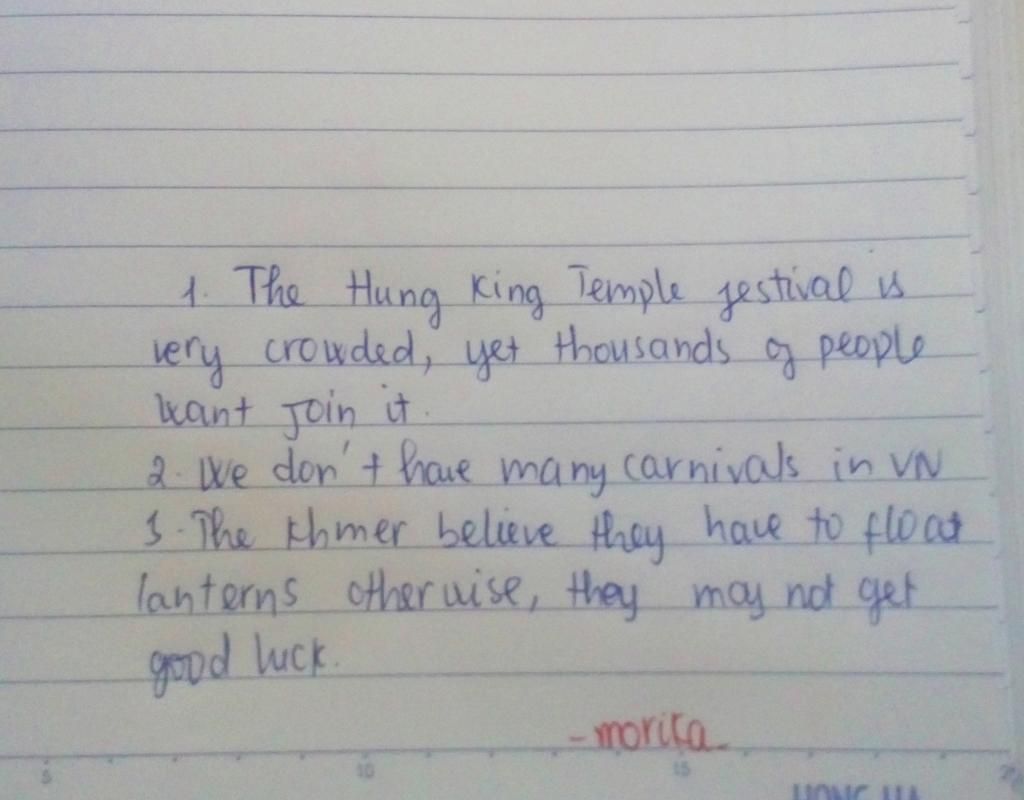 1. The Hung King Temple festival is
very crowded, yet thousands of people
want join it.
2. We don't have many carnivals in VN
3. The Khmer believe they have to float
lanterns otherwise, they may not get
good luck.
- morika -
5 10 15